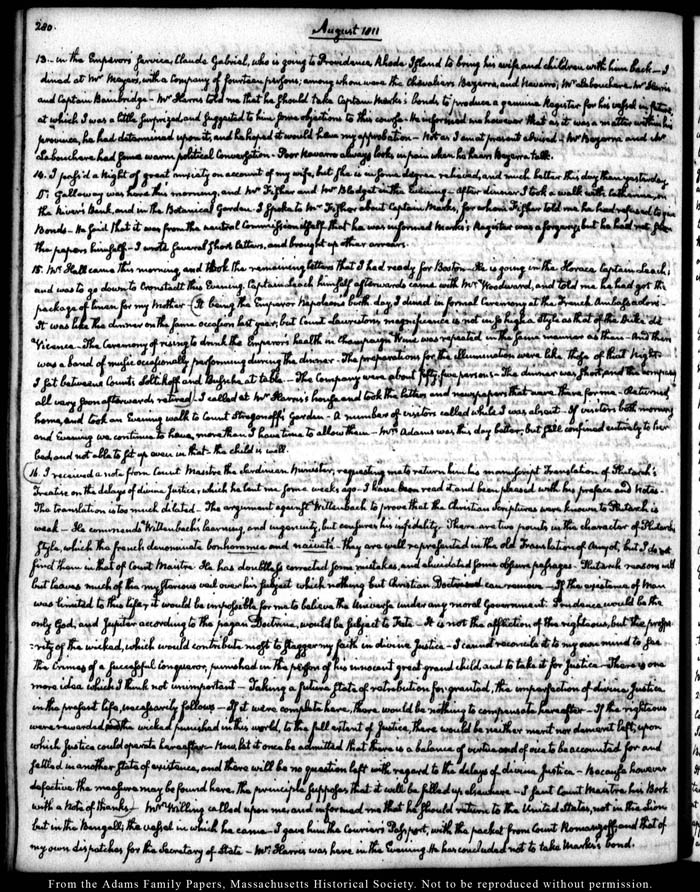 280.
August 1811
13. in the Emperor's service, Claude Gabriel, who is going to Providence, Rhode Island to bring his wife and children with him back— I
dined at Mr Meyer's, with a Company of fourteen persons; among whom were the Chevaliers Bezerra, and Navarro, Mr Labouchere, Mr Harris
and Captain Bainbridge— Mr Harris told me that he should take Captain Marks's bonds to produce a genuine Register for his vessel in future,
at which I was a little surprized, and suggested to him some objections to this course. He informed me however that as it was a matter within his
province, he had determined upon it, and he hoped it would have my approbation— Not as I am at present advised— Mr Bezerra and Mr
Labouchere had some warm political Conversation— Poor Navarro always looks in pain when he hears Bezerra talk.
14. I pass'd a Night of great anxiety on account of my wife, but she is in some degree relieved, and much better this day than yesterday
Galloway was here this morning, and Mr Fisher and Mr Blodget in the Evening— after dinner I took a walk with Catherine, on
the River's Bank, and in the Botanical Garden. I spoke to Mr Fisher about Captain Marks, for whom Fisher told me he had refused to give
Bonds— He said that it was from the neutral Commission itself that he was informed Marks's Register was a forgery; but he had not seen
the papers himself— I wrote several short letters, and brought up other arrears.
15. Mr Hall came this morning, and took the remaining letters that I had ready for Boston— He is going in the Horace, Captain Leach,
and was to go down to Cronstadt this Evening. Captain Leach himself afterwards came with Mr Woodward, and told me he had got the
package of linen for my Mother— It being the Emperor Napoleon's birth day, I dined in formal Ceremony at the French Ambassador's—
It was like the dinner on the same occasion last year; but Count Lauriston's magnificence is not in so high a style as that of the Duke de
Vicence— The Ceremony of rising to drink the Emperor's health in champaign Wine was repeated in the same manner as then— And there
was a band of music occasionally performing during the dinner— The preparations for the illumination were like those of that Night—
I sat between Counts Soltikoff and at table— The Company were about fifty, five persons— The dinner was short, and the company
all very soon afterwards retired— I called at Mr Harris's house and took the letters and newspapers that were there for me— Returned
home, and took an Evening walk to Count Strogonoff's Garden— A number of visitors called while I was absent— Of visitors both morning
and Evening we continue to have, more than I have time to allow them— Mrs Adams was this day better; but still confined entirely to her
bed, and not able to sit up even in that— the child is well.
16. I received a note from Count Maistre the Sardinian Minister, requesting me to return him his manuscript Translation of Plutarch's
Treatise on the delays of divine Justice, which he lent me some weeks ago— I have been read it and been pleased with his preface and Notes—
The translation is too much dilated— The argument against Wittenbach to prove that the Christian Scriptures were known to Plutarch is
weak— He commends Wittenbach's learning, and ingenuity, but censures his infidelity— There are two points in the character of Plutarch's
Style, which the french denominate bonhommie and naïveté— they are well represented in the old Translation of Amyot, but I do not
find them in that of Count Maistre. He has doubtless corrected some mistakes, and elucidated some obscure passages— Plutarch reasons well
but leaves much of the mysterious veil over his subject which nothing but Christian Doctrine can remove— If the existence of Man
was limited to this life, it would be impossible for me to believe the Universe under any moral Government. Prudence would be the
only God, and Jupiter according to the pagan Doctrine, would be subject to Fate— It is not the affliction of the righteous, but the prospe
-rity of the wicked, which would contribute most to stagger my faith in divine Justice— I cannot reconcile it to my own mind to see
the Crimes of a successful Conqueror, punished in the person of his innocent great grand child and to take it for Justice— There is one
more idea which I think not unimportant— Taking a future State of retribution for granted, the imperfection of divine Justice
in the present life, necessarily follows— If it were complete here, there would be nothing to compensate hereafter— If the righteous
were rewarded, and the wicked punished in this world, to the full extent of Justice, there would be neither merit nor demerit left; upon
which Justice could operate hereafter— Now let it once be admitted that there is a balance of virtue and of vice to be accounted for and
settled in another State of existence, and there will be no question left with regard to the delays of divine Justice— Because however
defective the measure may be found here, the principle supposes that it will be filled up elsewhere— I sent Count Maistre his Book
with a Note of thanks— Mr Willing called upon me, and informed me that he should return to the United States, not in the
but in the Bengall; the vessel in which he came— I gave him the Courier's Passport, with the packet from Count Romanzoff and that of
my own dispatches for the Secretary of State— Mr Harris was here in the Evening. He has concluded not to take Marks's bond.
From the Adams Family Papers, Massachusetts Historical Society. Not to be reproduced without permission.